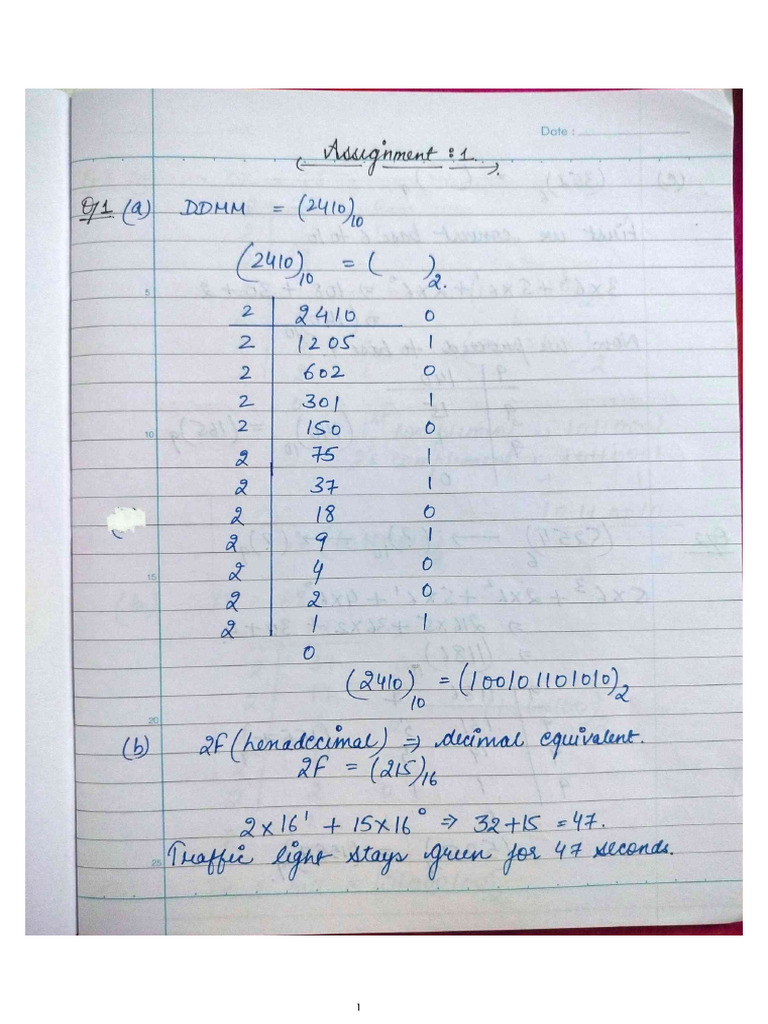 Date :
Assignment : 1
Q1 (a) DDMM = (2410)₁₀
(2410)₁₀ = ( )₂.
5
2 2410 0
2 1205 1
2 602 0
2 301 1
10 2 150 0
2 75 1
2 37 1
2 18 0
2 9 1
15 2 4 0
2 2 0
2 1 1
0
(2410)₁₀ = (100101101010)₂
20
(b) 2F (hexadecimal) ⇒ decimal equivalent.
2F = (215)₁₆
2×16¹ + 15×16⁰ ⇒ 32+15 = 47.
25 Traffic light stays green for 47 seconds.
1